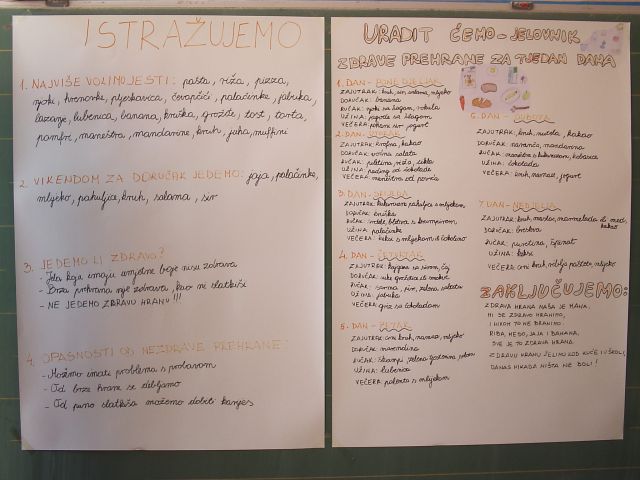 ISTRAŽUJEMO
1. NAJVIŠE VOLIMO JESTI: pasta, riža, pizza,
njoki, hrenovke, pljeskavica, čevapčići, palačinke, jabuka,
lazanje, lubenica, banana, kruška, grožđe, tost, torta,
pomfri, maneštra, mandarine, kruh, juha, muffini
2. VIKENDOM ZA DORUČAK JEDEMO: jaja, palačinke,
mlijeko, pahuljice, kruh, salama, sir
3. JEDEMO LI ZDRAVO?
- Jela koja imaju umjetne boje nisu zdrava
- Brza prehrana nije zdrava, kao ni slatkiši
- NE JEDEMO ZDRAVU HRANU!!!
4. OPASNOSTI OD NEZDRAVE PREHRANE:
- Možemo imati problema s probavom
- Od brze hrane se debljamo
- Od puno slatkiša možemo dobiti karijes
URADIT ĆEMO - JELOVNIK
ZDRAVE PREHRANE ZA TJEDAN DANA
1. DAN - PONEDJELJAK
ZAJUTRAK: kruh, sir, salama, mlijeko
DORUČAK: banana
RUČAK: njoki sa šugom, rikula
UŽINA: jagode sa šlagom
VEČERA: pohani sir, jogurt
2. DAN - UTORAK
ZAJUTRAK: krafna, kakao
DORUČAK: voćna salata
RUČAK: piletina, riža, cikla
UŽINA: puding od čokolade
VEČERA: maneštra od povrća
3. DAN - SRIJEDA
ZAJUTRAK: kukuruzne pahuljice s mlijekom
DORUČAK: kruška
RUČAK: blitva s krumpirom
UŽINA: palačinke
VEČERA: keksi s mlijekom ili čokolino
4. DAN - ČETVRTAK
ZAJUTRAK: kajgana sa sirom, čaj
DORUČAK: suhe grožđice ili smokve
RUČAK: zelena salata
UŽINA: jabuka
VEČERA: griz sa čokoladom
5. DAN - PETAK
ZAJUTRAK: crni kruh, namaz, mlijeko
DORUČAK: mandarina
RUČAK:
UŽINA: lubenica
VEČERA: palenta s mlijekom
6. DAN - SUBOTA
ZAJUTRAK: kruh, nutela, kakao
DORUČAK: naranča, mandarina
RUČAK: maneštra s kukuruzom, kobasica
UŽINA: čokolada
VEČERA: kruh, namaz, jogurt
7. DAN - NEDJELJA
ZAJUTRAK: kruh, maslac, marmelada ili med,
kakao
DORUČAK: breskva
RUČAK: puretina, špinat
UŽINA: keksi
VEČERA: crni kruh, riblja pašteta, mlijeko
ZAKLJUČUJEMO:
ZDRAVA HRANA NAŠA JE MANA,
MI SE ZDRAVO HRANIMO,
I NIKOM TO NE BRANIMO.
RIBA, MESO, JAJA I BANANA,
SVE JE TO ZDRAVA HRANA.
ZDRAVU HRANU ŽELIMO KOD KUĆE I U ŠKOLI,
DA NAS NIKADA NIŠTA NE BOLI!